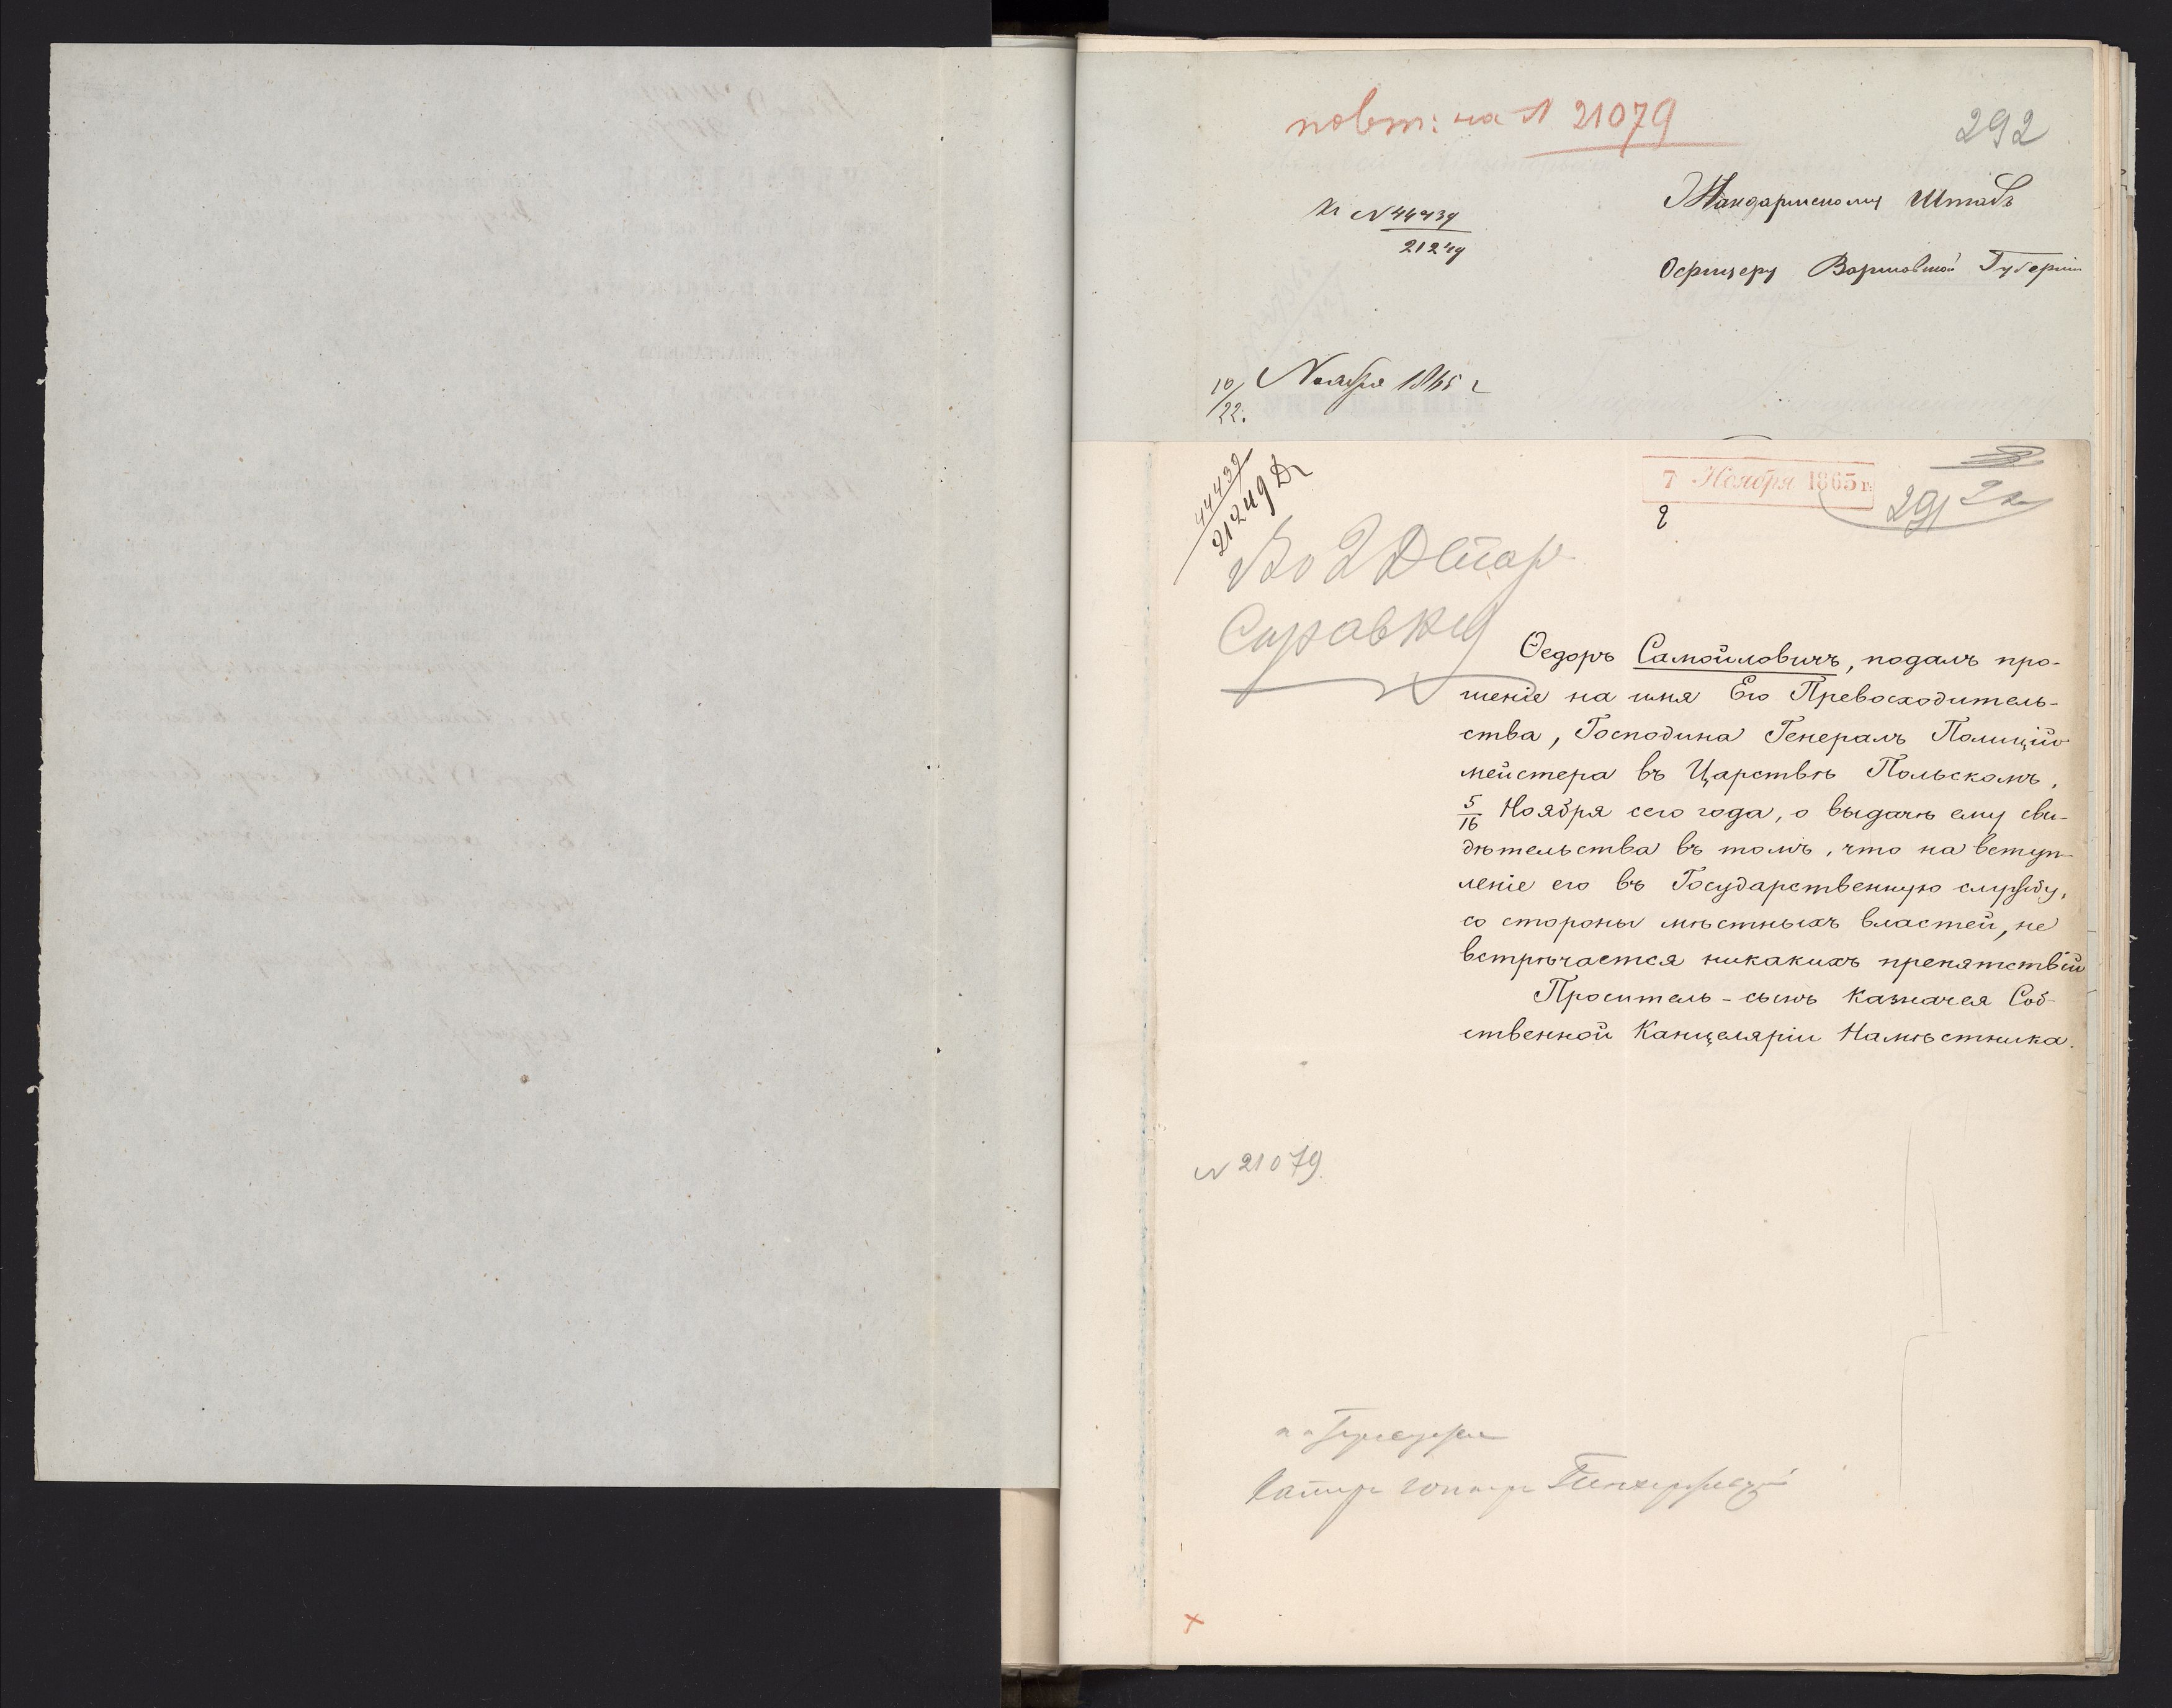 повт: на № 21079
292
Жандармскому Штабъ
Офицеру Варшавской Губерніи
Къ № 44439
21249
10/22. Ноября 1865 г
44439
21249
7 Ноября 1865 г.
291
Во 2 Д
Справку
Ѳедоръ Самойловичъ, подалъ про-
шеніе на имя Его Превосходитель-
ства, Господина Генералъ Полиціи-
мейстера въ Царствѣ Польскомъ,
5/16 Ноября сего года, о выдачѣ ему сви-
дѣтельства въ томъ, что на вступ-
леніе его въ Государственную службу,
со стороны мѣстныхъ властей, не
встрѣчается никакихъ препятствій
Проситель - сынъ Казначея Соб-
ственной Канцеляріи Намѣстника.
№ 21079.